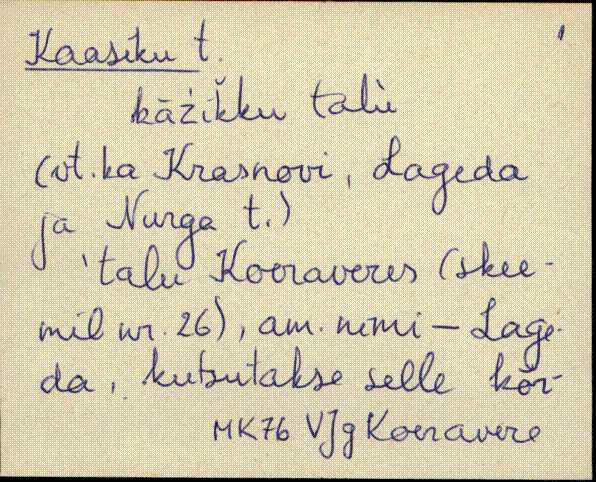 1
Kaasiku t.
kāžik̆ku talù
(vt. ka Krasnovi, Lageda
ja Nurga t.)
'talu Koeraveres (skee-
mil nr. 26), am. nimi – Lage-
da, kutsutakse selle kõr-
MK76 VJg Koeravere